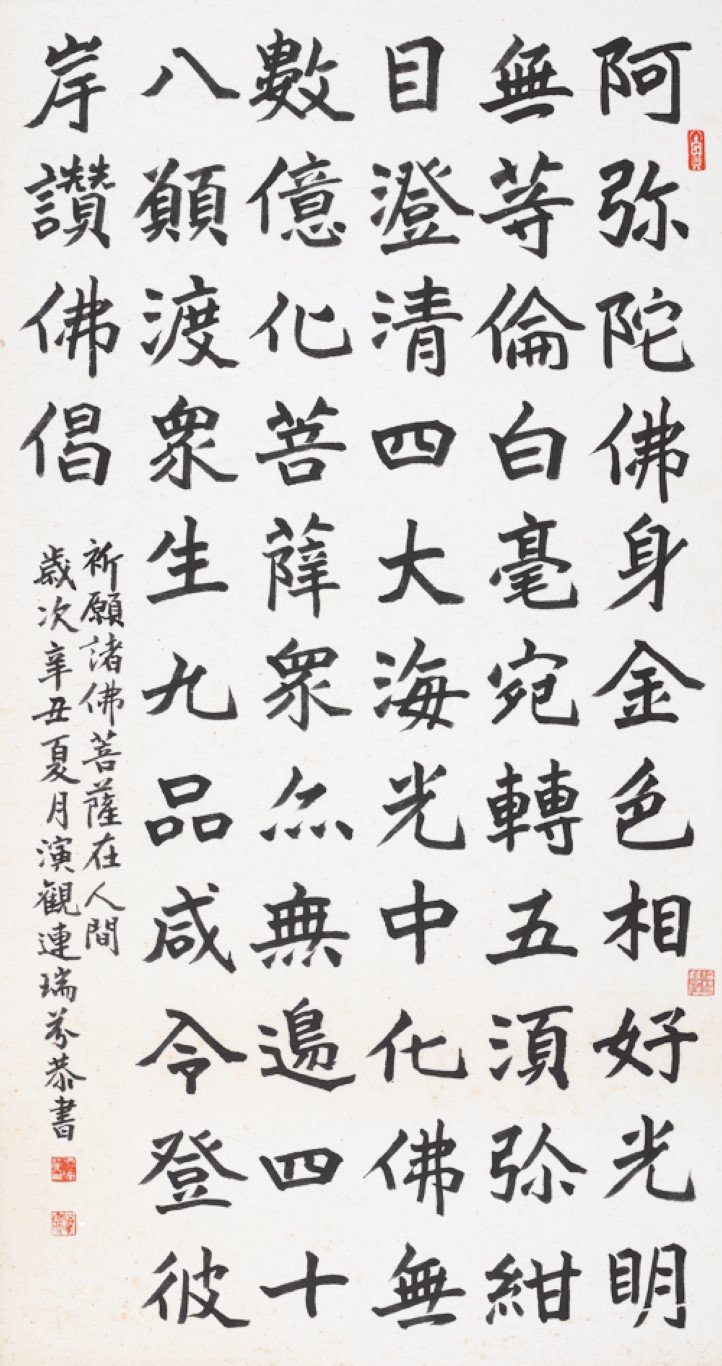 阿弥陀佛身金色相好光明
無等倫白毫宛轉五須弥紺
目澄清四大海光中化佛無
數億化菩薩眾亦無邊四十
八願渡眾生九品咸令登彼
岸讚佛倡
祈願諸佛菩薩在人間
歲次辛丑夏月演觀連瑞芬恭書